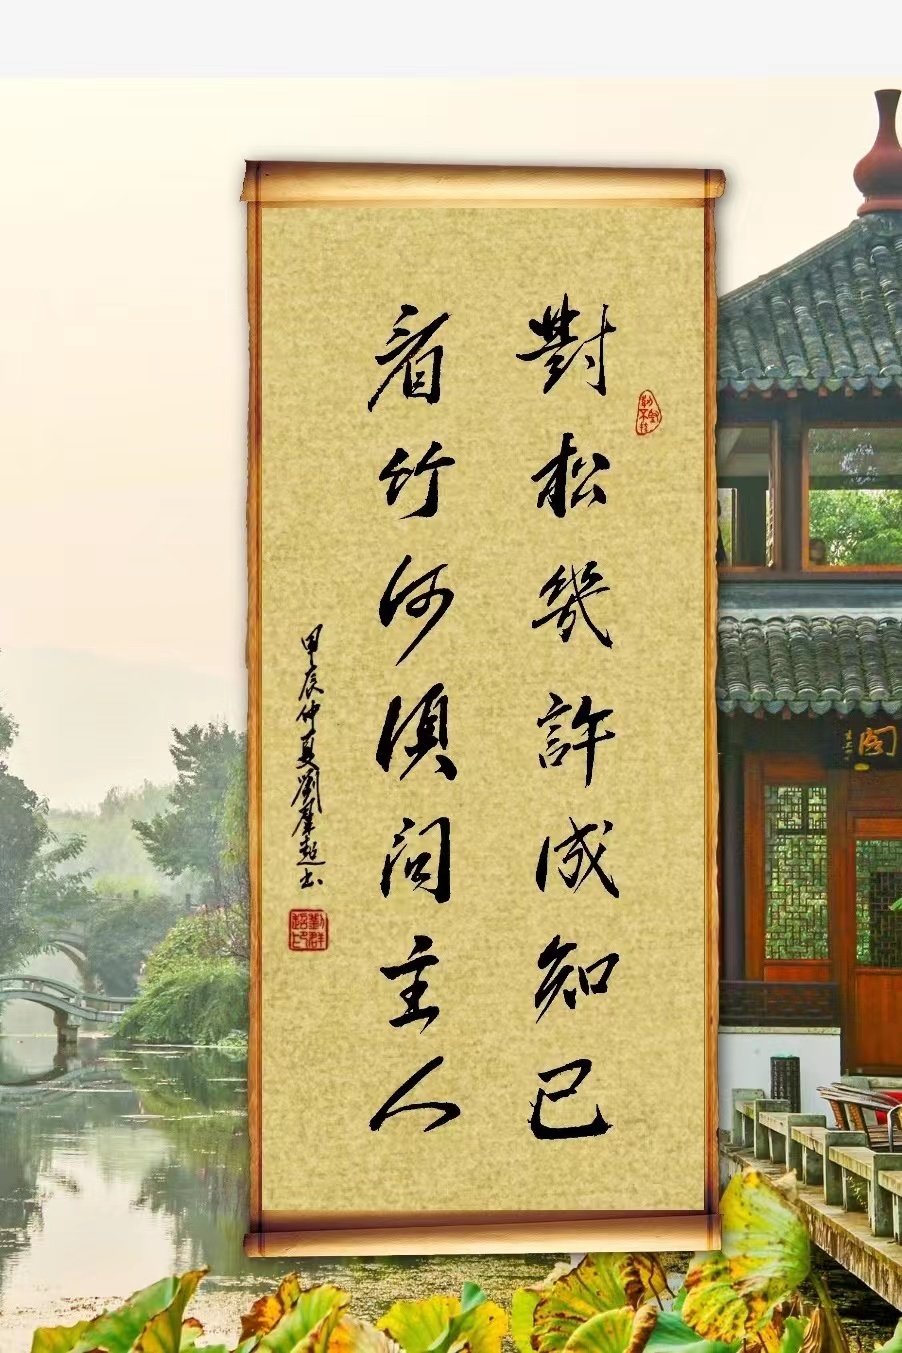 對松幾許成知己
看竹何須問主人
甲辰仲夏劉群超書
閣